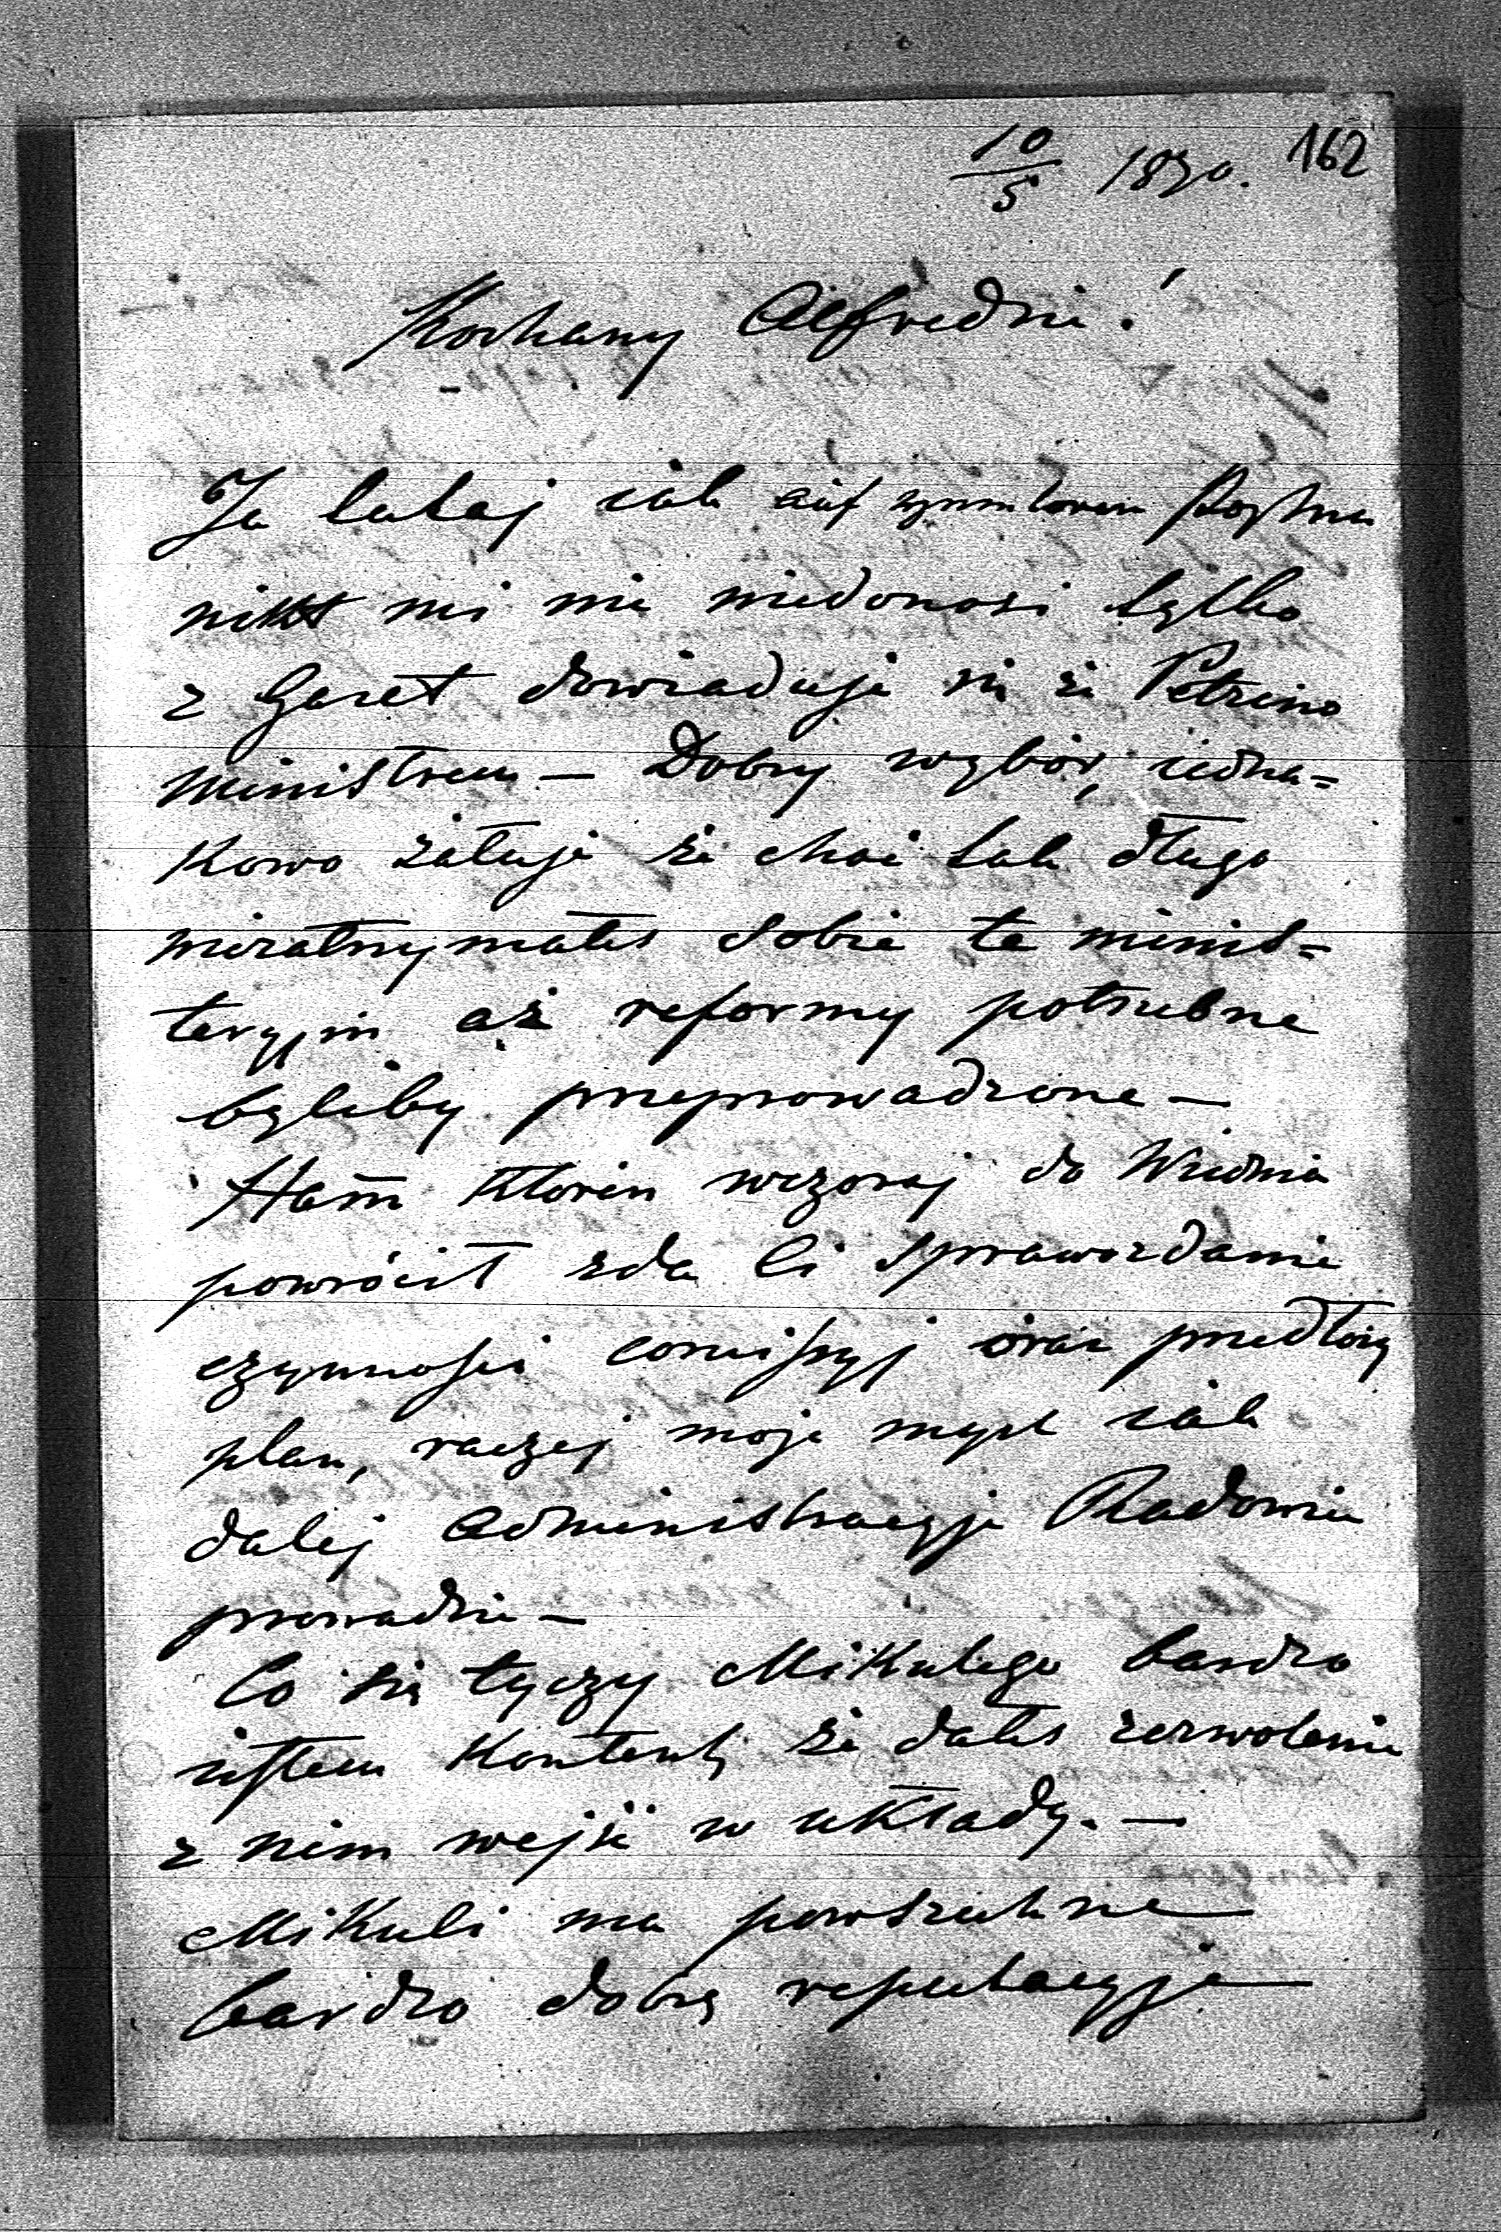 10/5 1870. 162
Kochany Alfredzie!
Ja tutaj jak auf
nikt mi nie niedonosi tylko
z Gazet dowiaduje się że Petrino
ministrem — Dobry wybór, iedna=
kowo żałuje że choć tak długo
niezatrzymałeś sobie te minis=
teryjm aż reformy potrzebne
byliby przeprowadzone —
Ham̄ Ktoren wczoraj do Wiednia
powrócił zda Ci sprawozdanie
czynności comissyj oraz przedłoży
plan, raczej moje mysl iak
dalej administracyje Radowiec
prowadzić —
Co się tyczy Mikulego bardzo
iestem Kontent, że dałeś zezwolenie
z nim wejść w układy. —
Mikuli ma powszechne
bardzo dobrą reputacyje